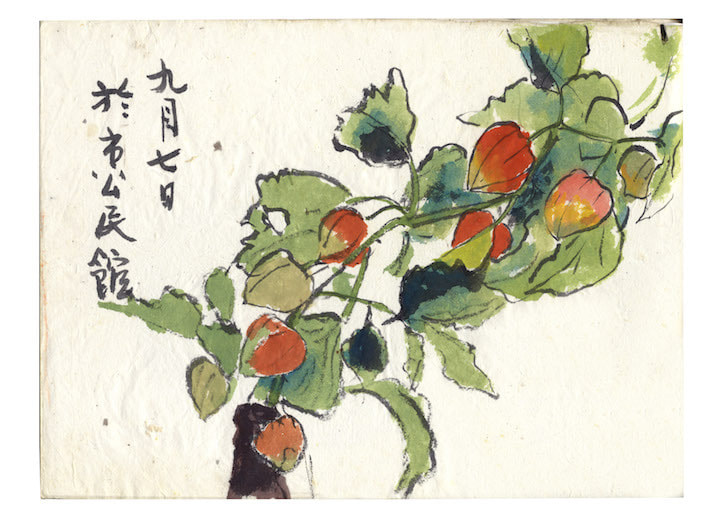 九月七日
於市公民館